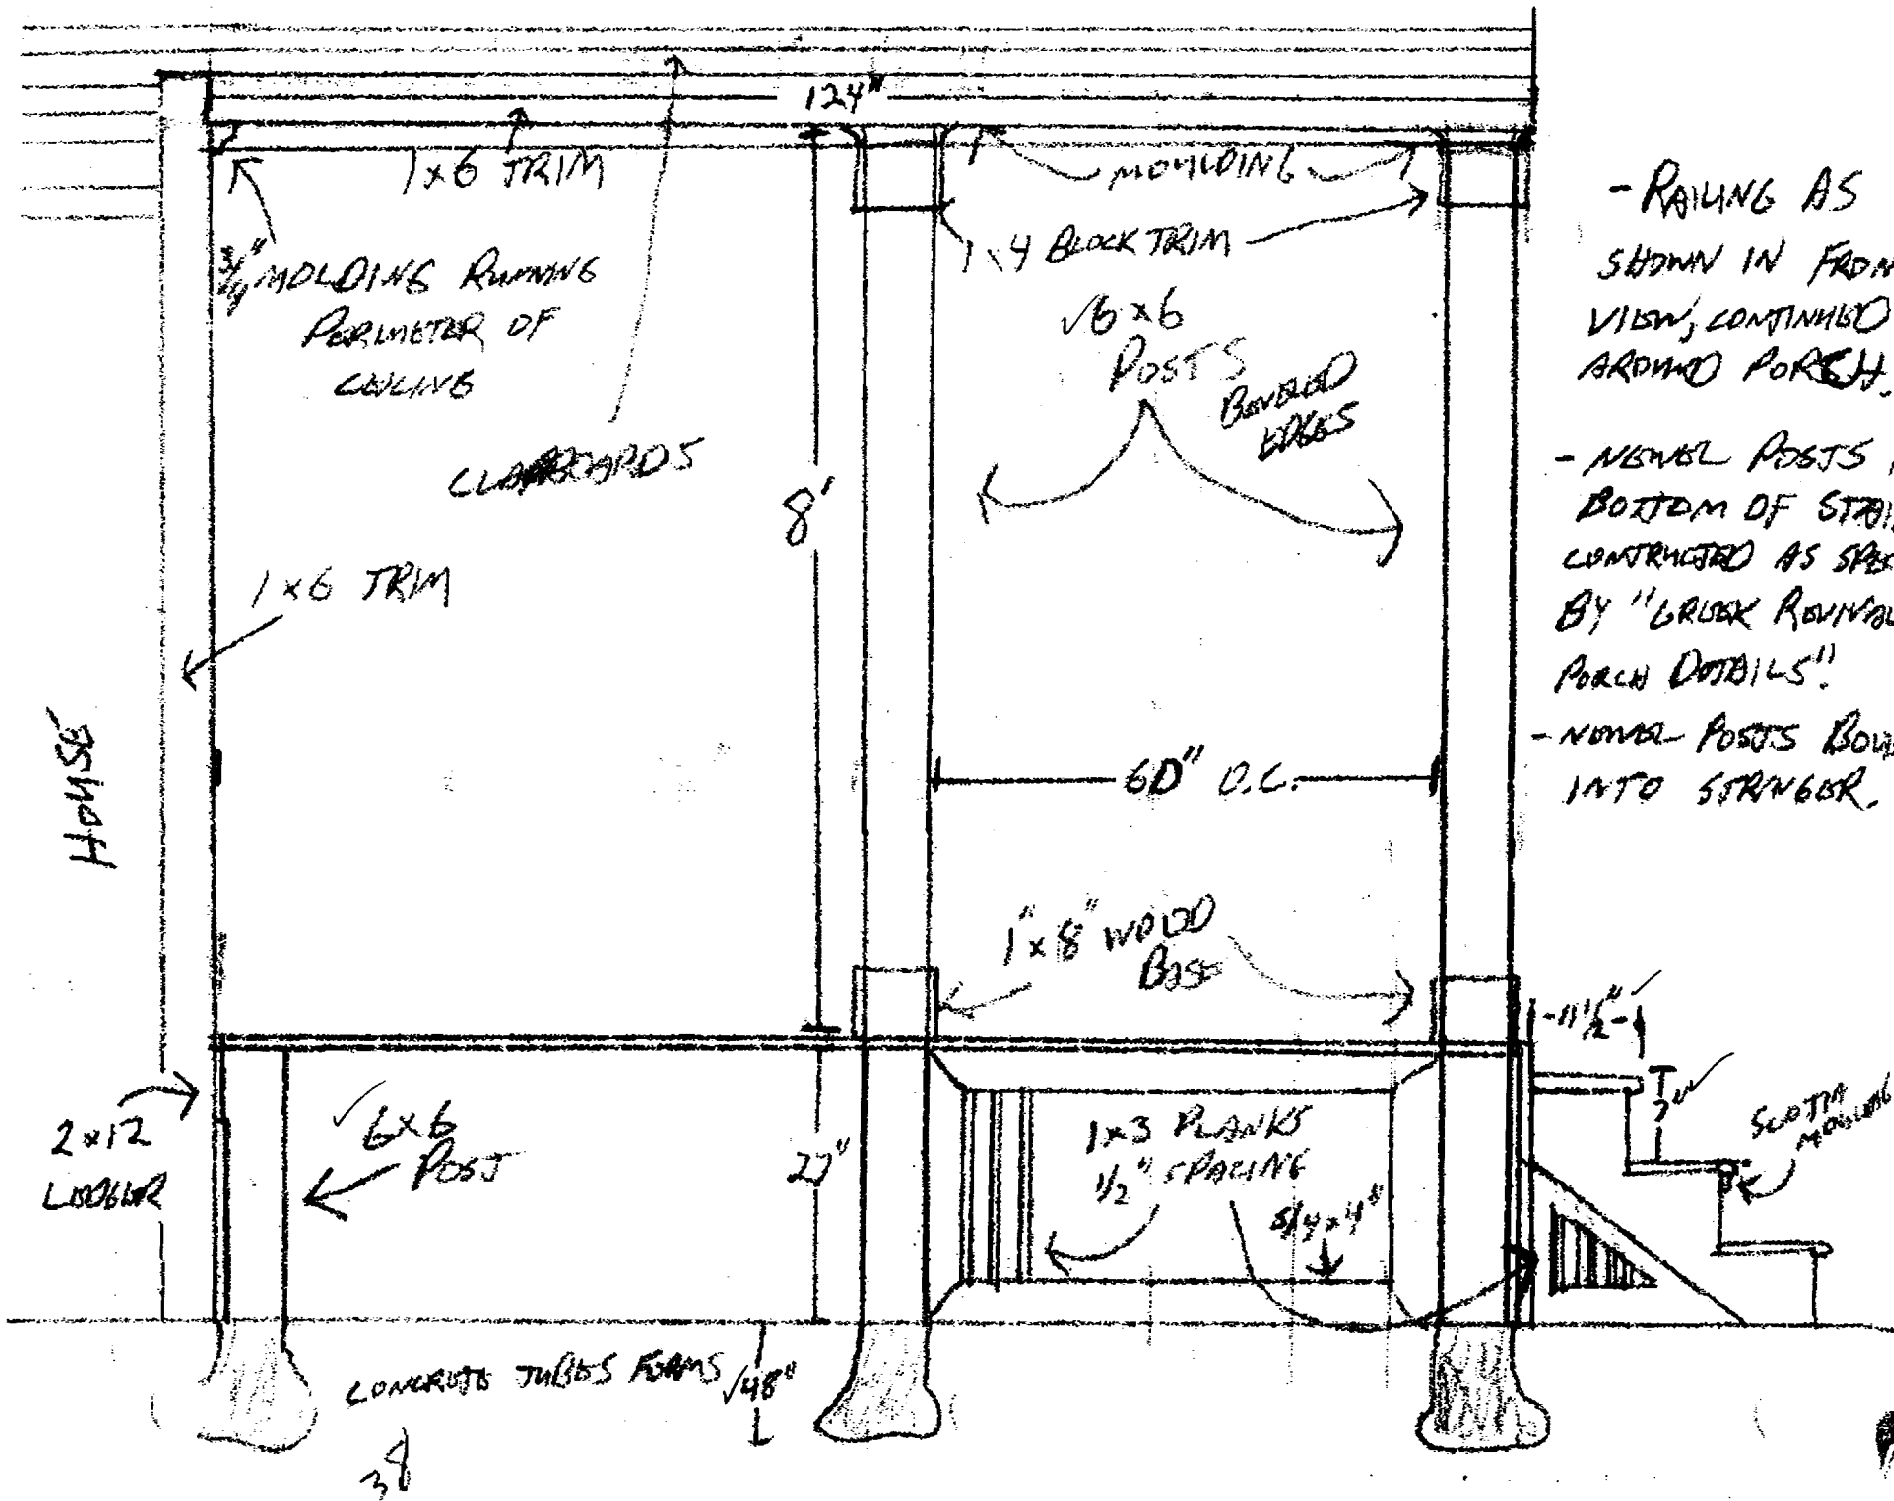 124"
1x6 TRIM
MOULDING
1x4 BLOCK TRIM
3/4" MOLDING RUNNING
PERIMETER OF
CEILING
√6x6
POSTS
BEVELED
EDGES
CLAPBOARDS
8'
1x6 TRIM
HOUSE
60" O.C.
1"x8" WOOD
BASE
-11½"-
7"
SCOTIA
MOULDING
2x12
LEDGER
√6x6
POST
27"
1x3 PLANKS
1/2" SPACING
5/4x4"
CONCRETE TUBES FORMS
√48"
38
- RAILING AS
SHOWN IN FRON
VIEW, CONTINUED
AROUND PORCH.
- NEWEL POSTS
BOTTOM OF STAI
CONTRUCTED AS SPEC
BY "GREEK REVIVAL
PORCH DETAILS".
- NEWEL POSTS
INTO STRINGER.